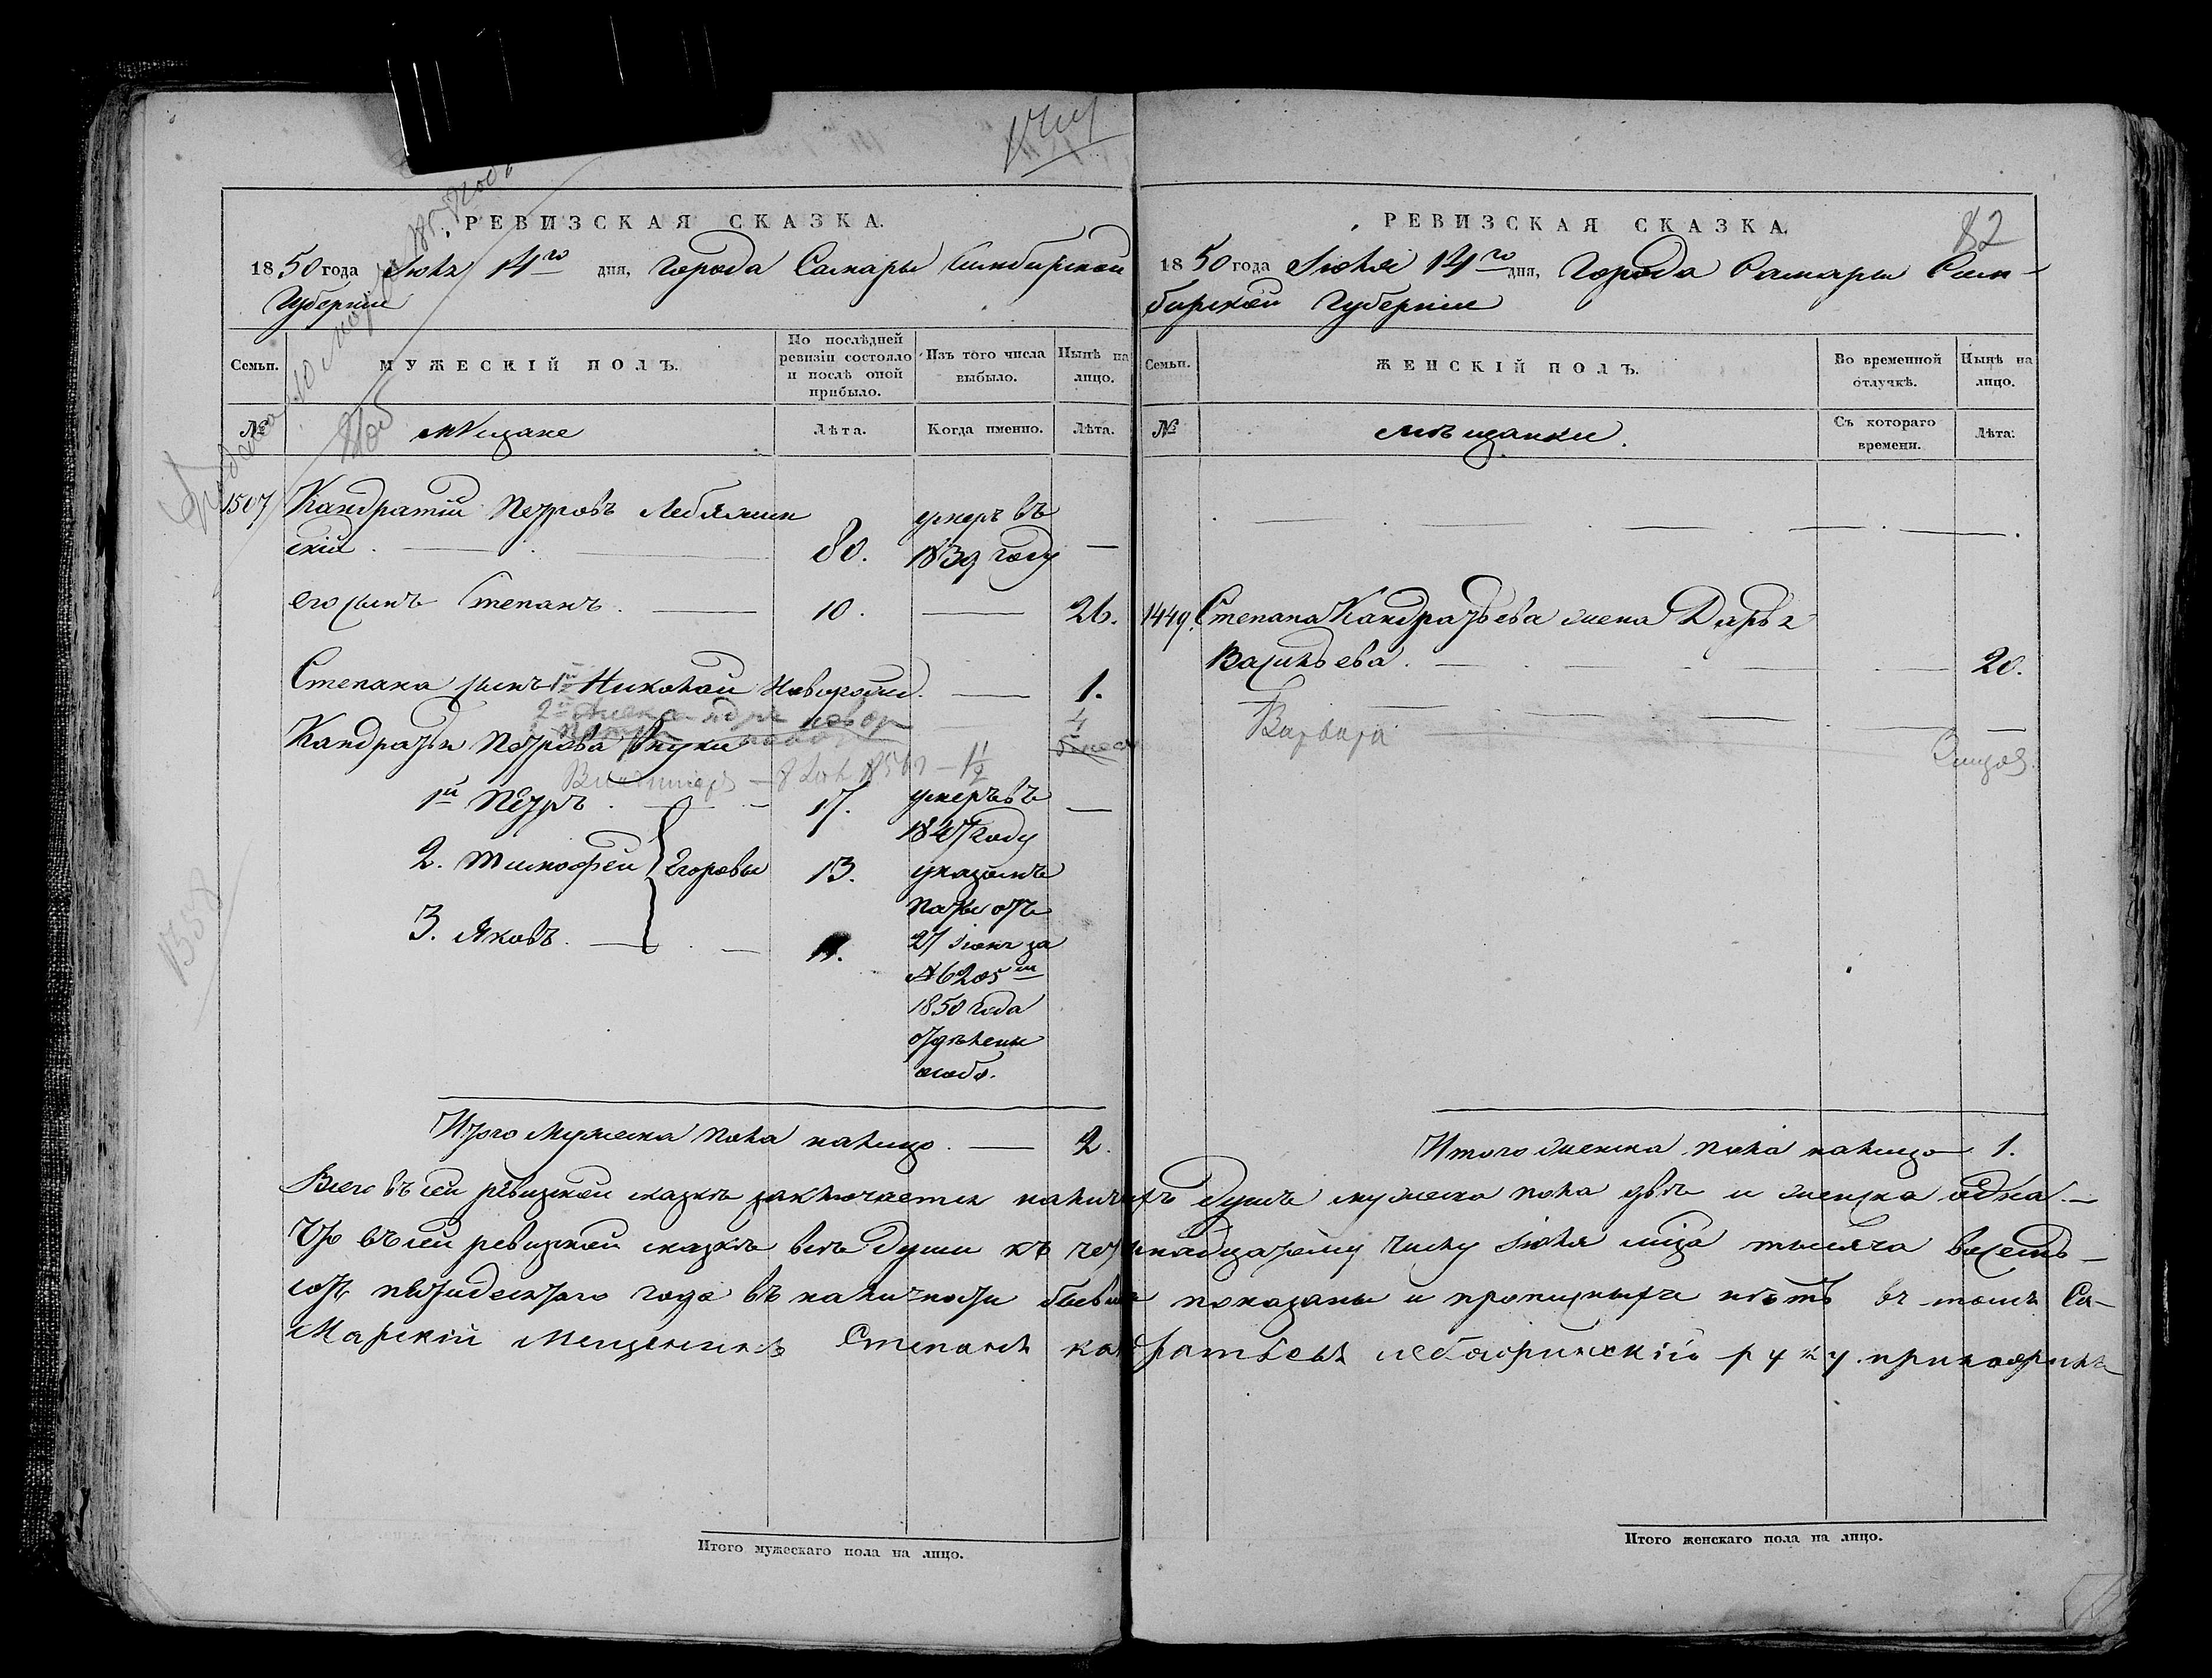 РЕВИЗСКАЯ СКАЗКА.
1850 года Іюля 14го дня, Города Самары Симбирской
Губерніи
Семьи.
МУЖЕСКІЙ ПОЛЪ.
По послѣдней ревизіи состояло и послѣ оной прибыло.
Изъ того числа выбыло.
Нынѣ на лицо.
№
Мѣщане
Лѣта.
Когда именно.
Лѣта.
1507 Кандратій Петровъ Лебяжин
скій 80. умеръ въ 1839 году —
его сынъ Степанъ. — 10. — 26.
Степана сынъ 1й Николай новорожд. — 1.
2й Александръ новор 4
Кандратья Петрова внуки
1й Петръ. — 17. умеръ въ 1847 году —
2. Тимофей Егоровы 13. указомъ
3. Яковъ. — 11. Палаты отъ
27 Іюня за
№ 6205м
1850 года
отдѣлены
особо.
Итого мужеска пола налицо. — 2.
1358
Итого мужескаго пола на лицо.
82
РЕВИЗСКАЯ СКАЗКА.
1850 года Іюля 14го дня, Города Самары Сим-
бирской Губерніи
Семьи.
ЖЕНСКІЙ ПОЛЪ.
Во временной отлучкѣ.
Нынѣ на лицо.
№
Мѣщанки.
Съ котораго времени.
Лѣта.
1449. Степана Кандратьева жена Дарья
Васильева. — 20.
Варвара
Итого женска пола налицо 1.
Всего въ сей ревизской сказкѣ заключается наличныхъ душъ мужеска пола двѣ и женска одна. —
Что въ сей ревизской сказкѣ всѣ души къ четырнадцатому числу Іюля мца тысяча восемь-
сотъ пятидесятаго года въ наличности бывшія показаны и прописныхъ нѣтъ въ томъ Са-
марскій Мещенинъ Степанъ
руку приложилъ
Итого женскаго пола на лицо.